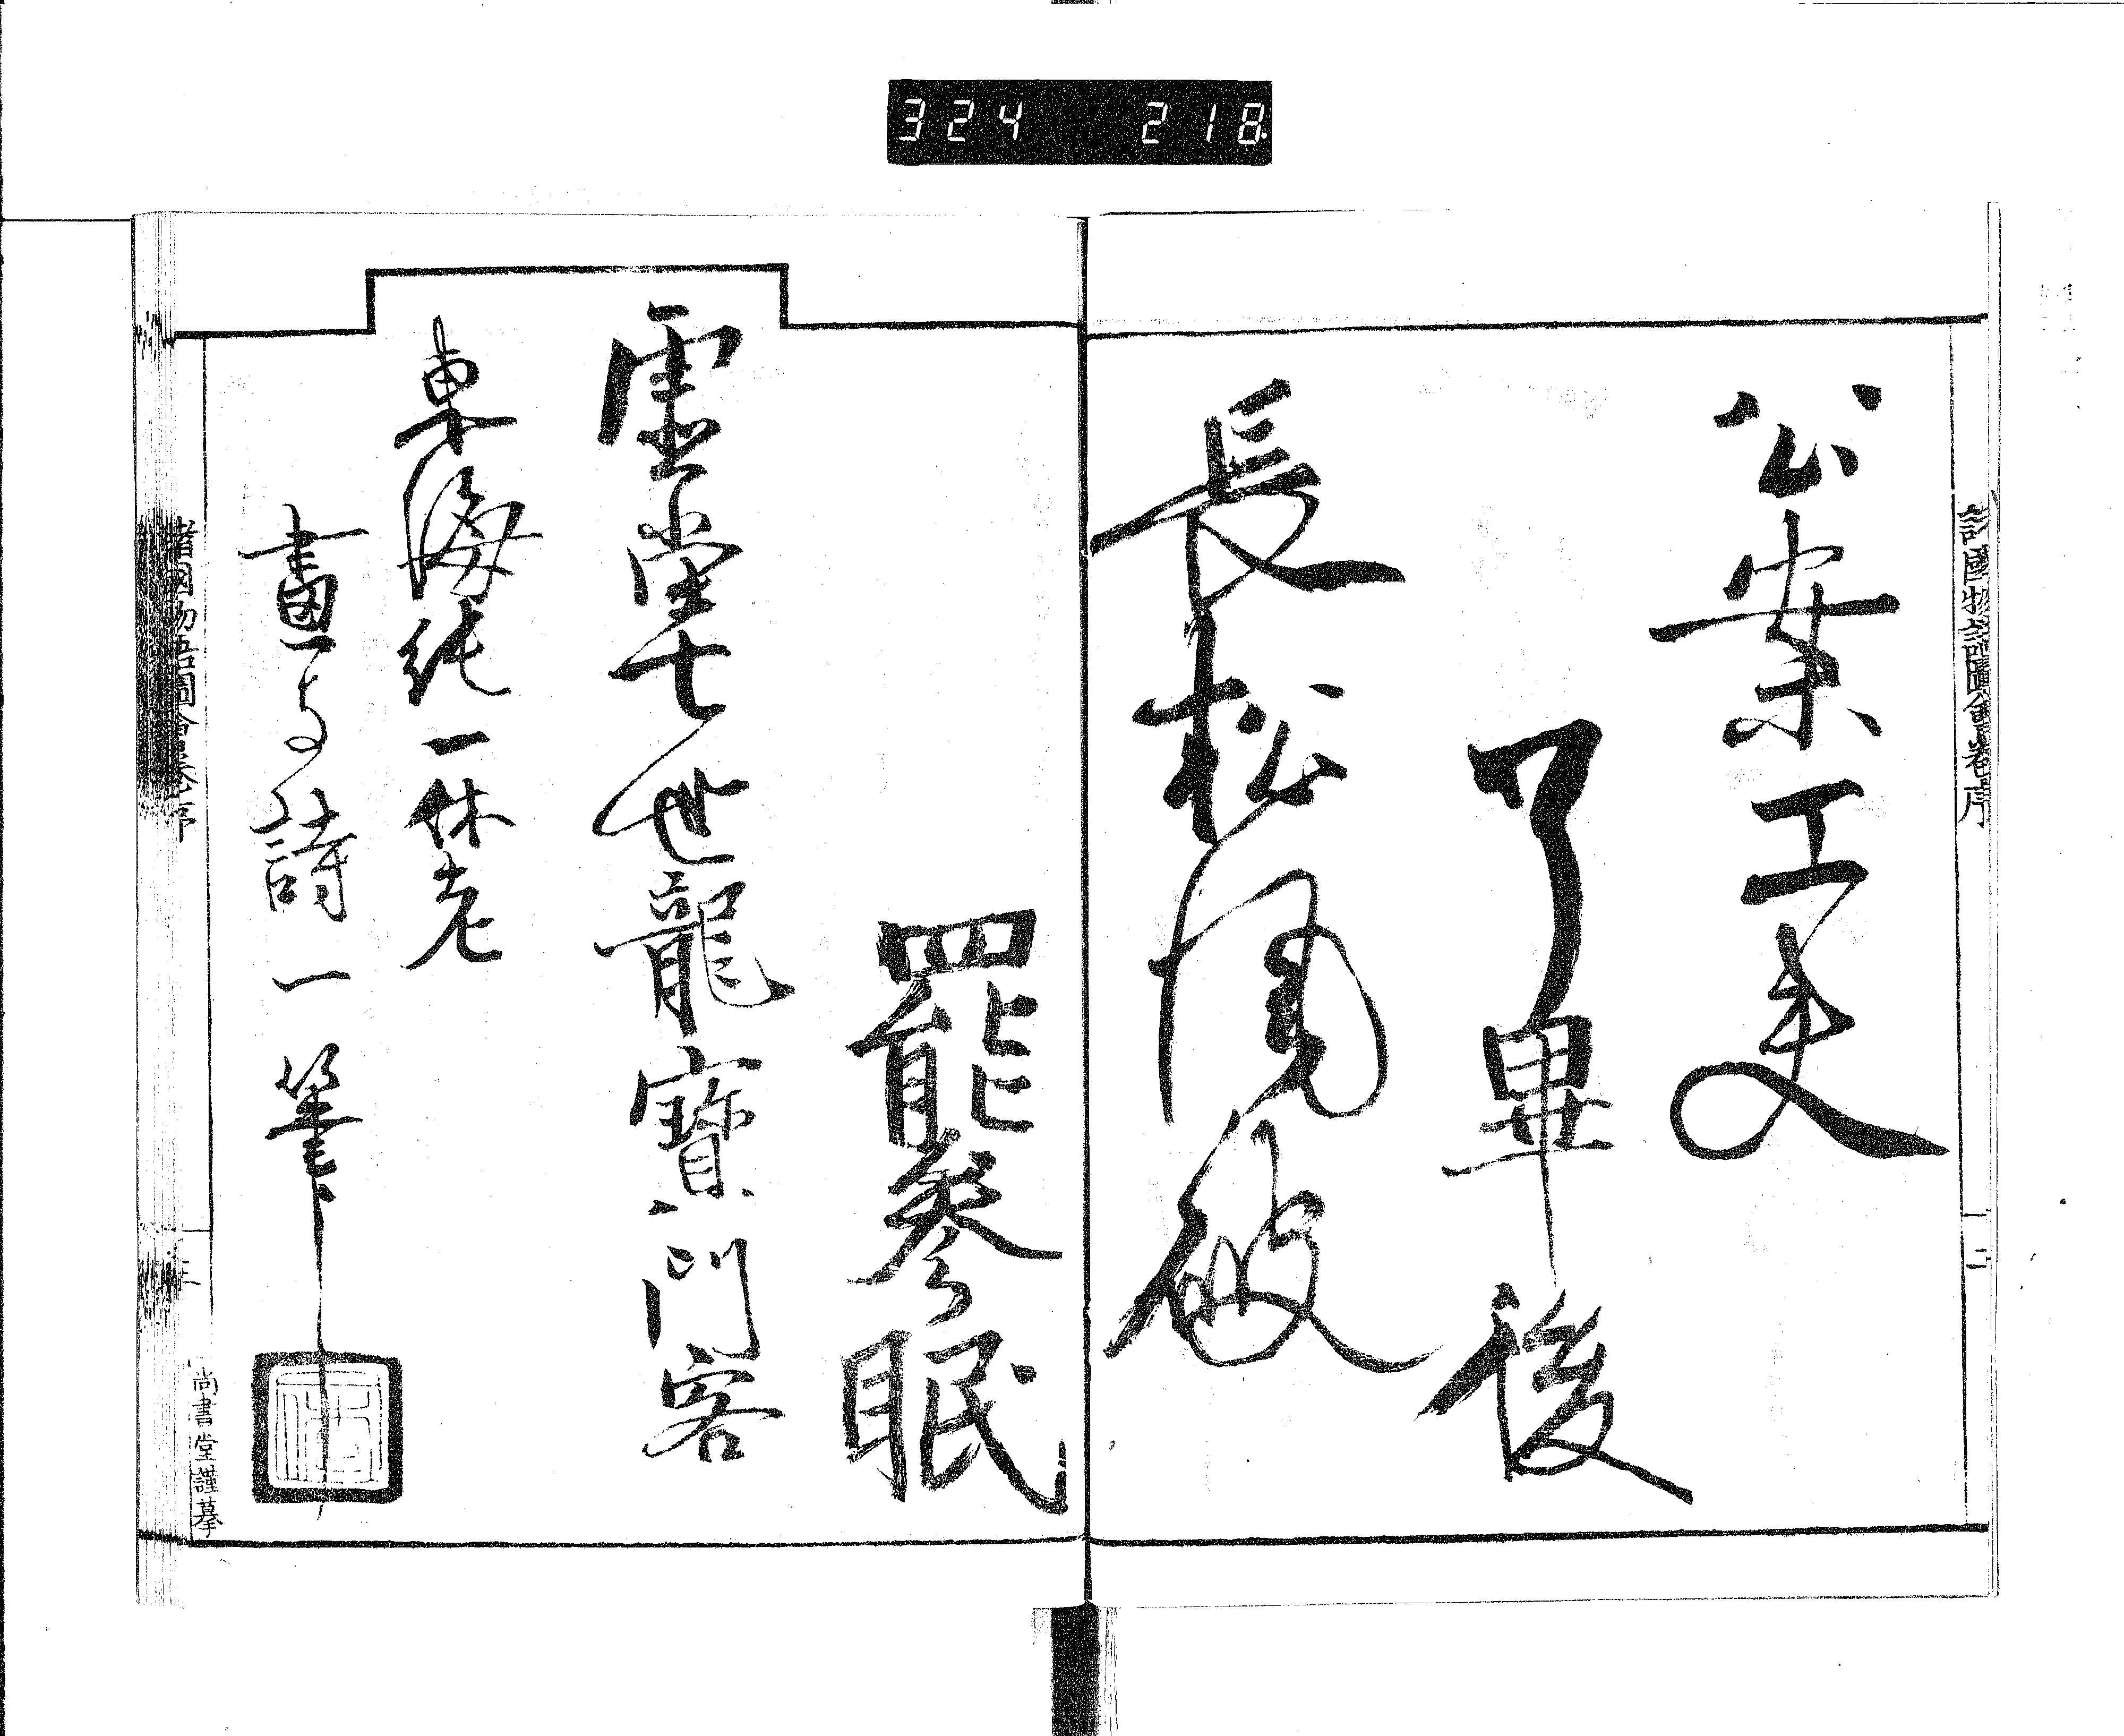 324 218.
諸國物語圖會卷序
二
公案工夫
了畢後
長松風破
罷參眠
虛堂七世龍寶門客
東海純一休老
畫与詩一筆
諸國物語圖會卷序
三
尚書堂謹摹